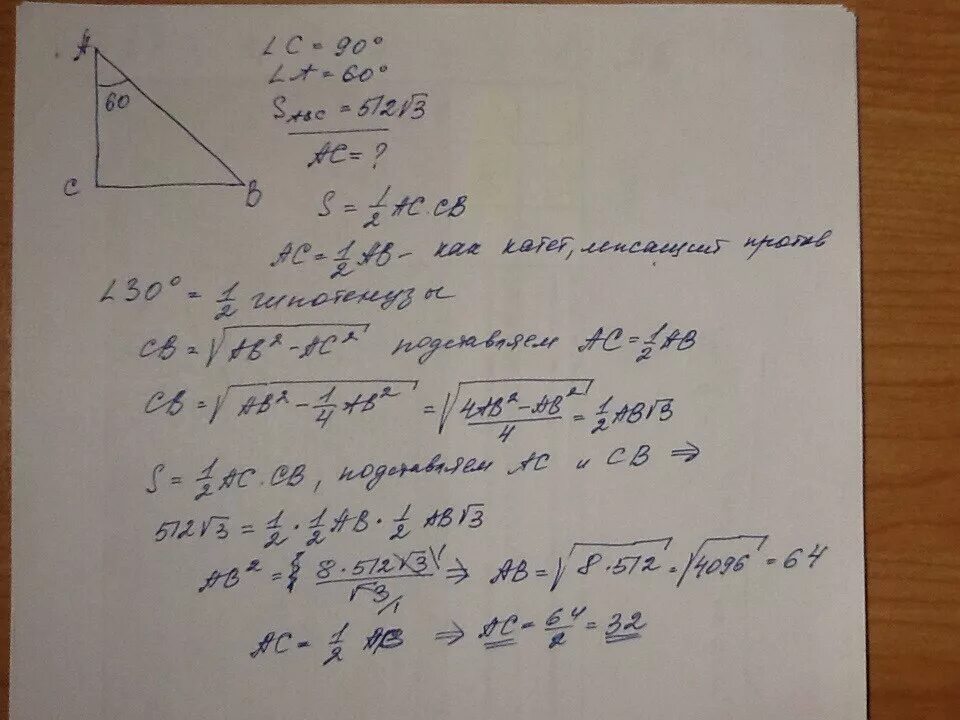 A
60
C
B
∠C = 90°
∠A = 60°
S ABC = 512√3
AC = ?
S = 1/2 AC · CB
AC = 1/2 AB – как катет, лежащий против
∠30° = 1/2 гипотенузы
CB = √(AB² – AC²) подставляем AC = 1/2 AB
CB = √(AB² – 1/4 AB²) = √((4AB² – AB²)/4) = 1/2 AB√3
S = 1/2 AC · CB, подставляем AC и CB ⇒
512√3 = 1/2 · 1/2 AB · 1/2 AB√3
AB² = (8 · 512√3)/√3 ⇒ AB = √(8 · 512) = √4096 = 64
AC = 1/2 AB ⇒ AC = 64/2 = 32